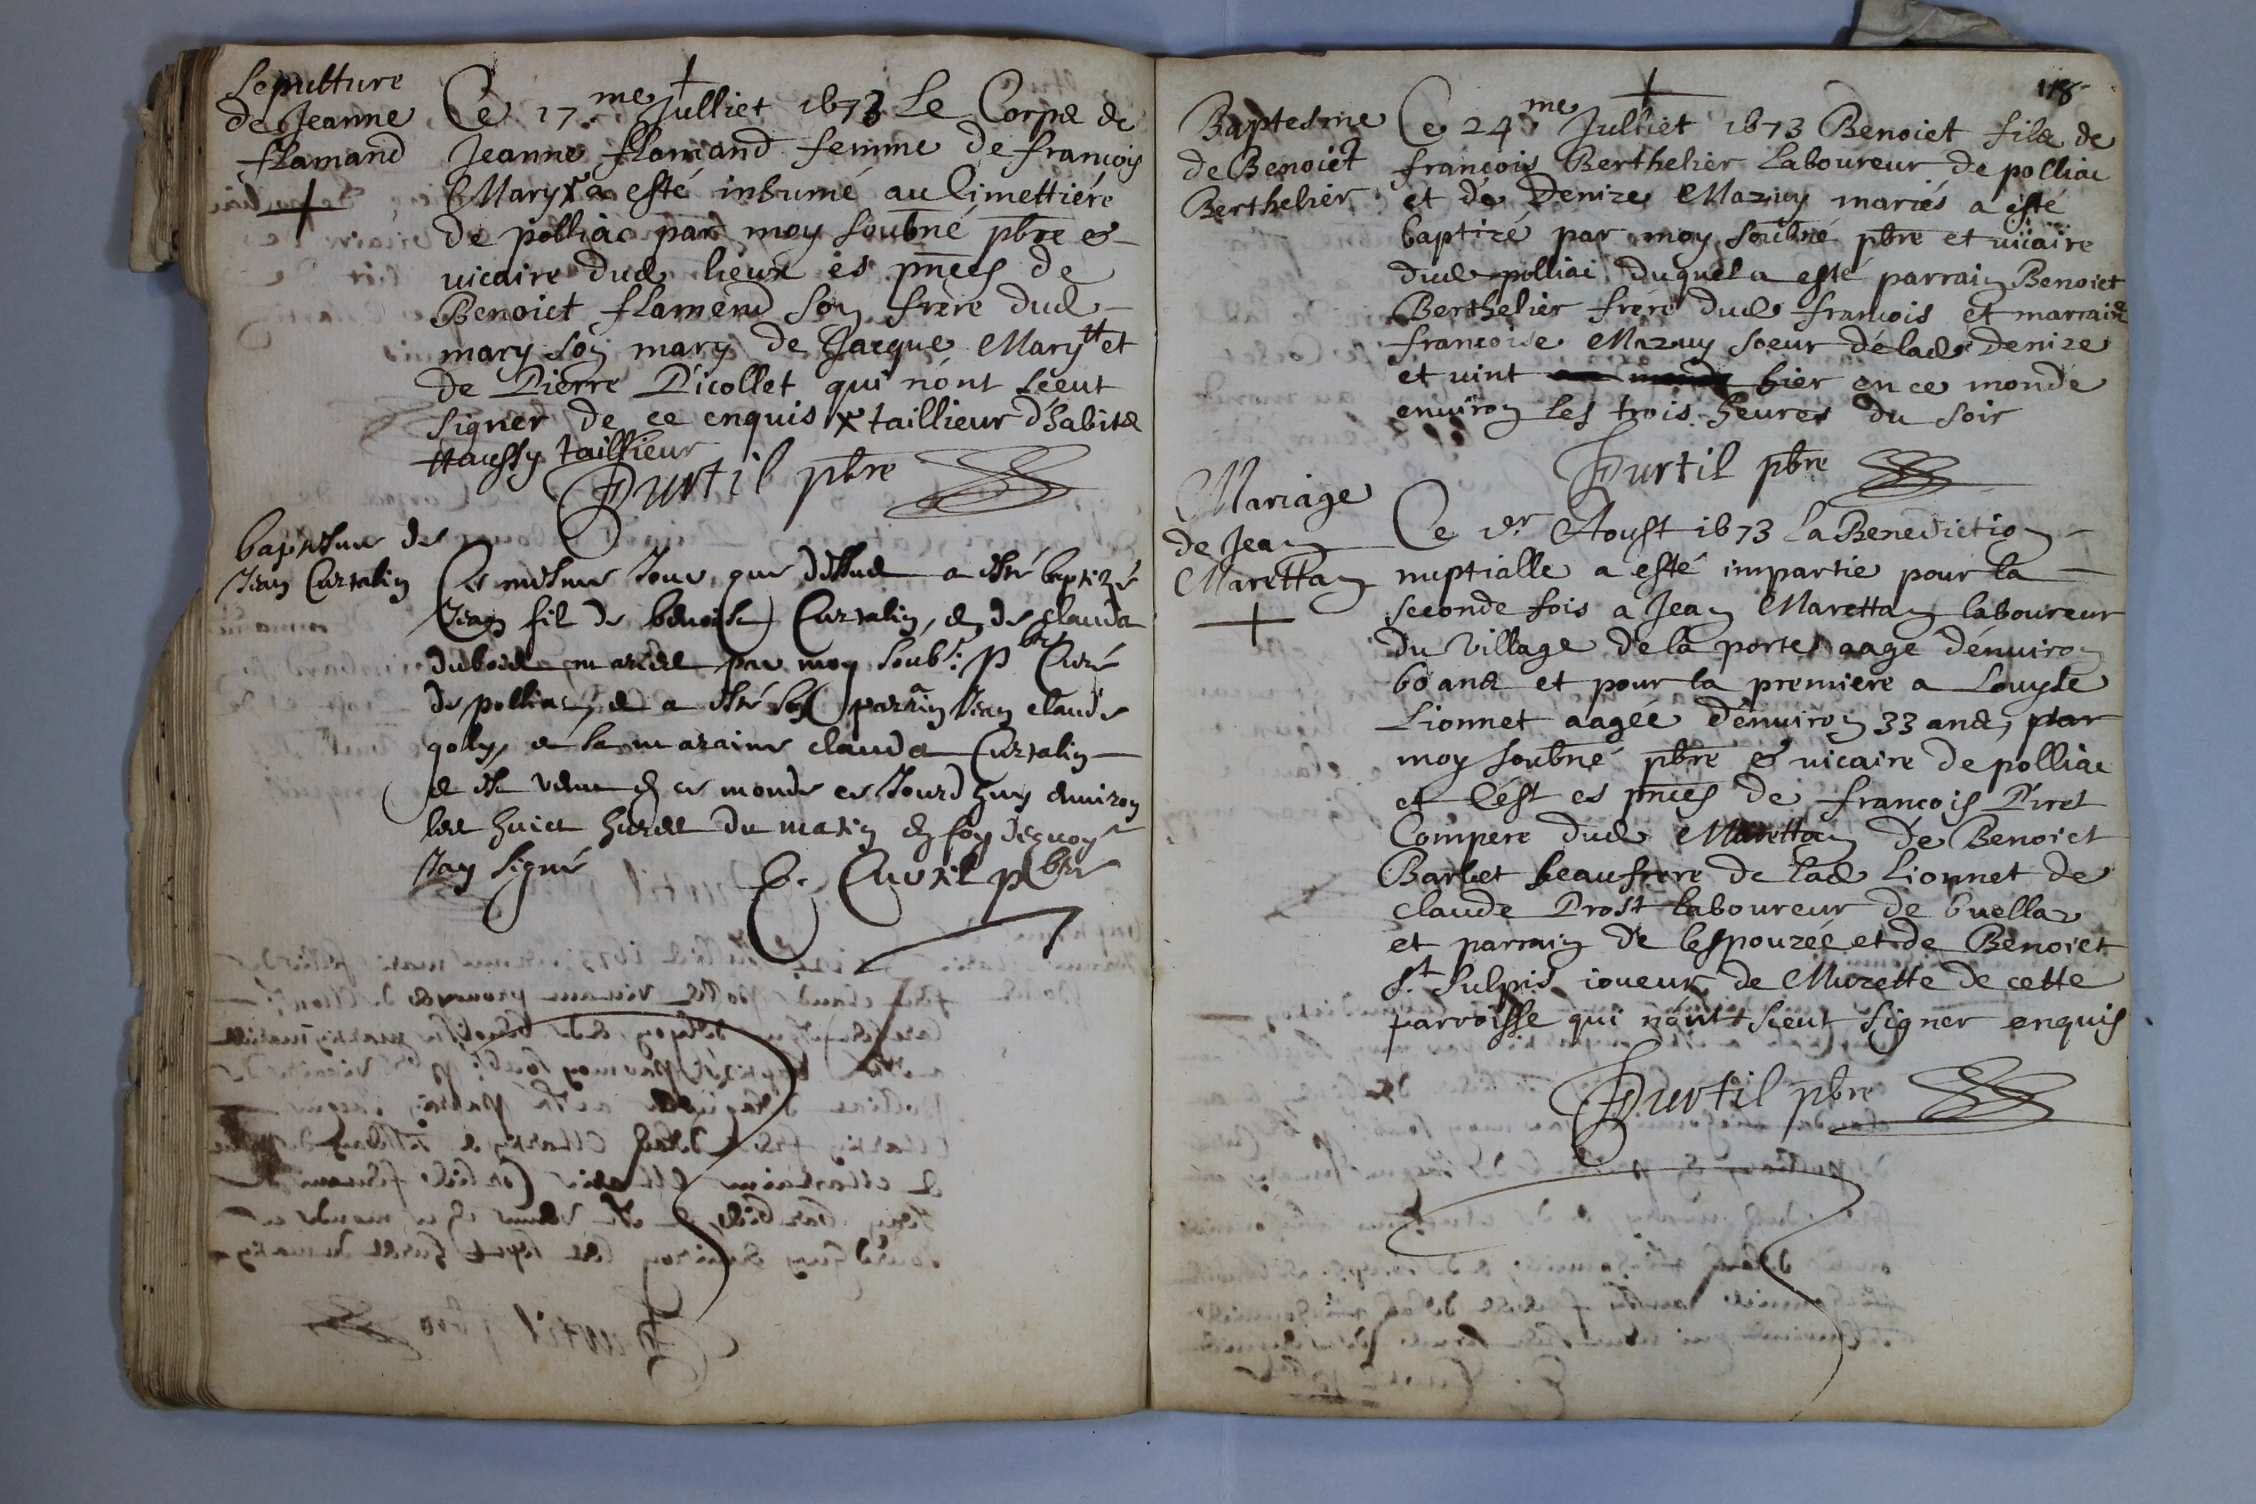 Sepulture
de Jeanne
flamand
Ce 17.me Julliet 1673 Le Corps de
Jeanne flamand femme de francois
Mary x a esté inhumé au Cimettiére
de polliac par moy soubné pbre et
vicaire dud lieux és pnces de
Benoict flamend son frere dud
mary son mary de Jacque Mary tt et
de Pierre Picollet qui nónt sceut
signer de ce enquis x taillieur d'habits
tt aussy taillieur
Curtil pbre
baptesme de
Jean Curtalin
Ce mesme Jour que dessus a esté baptizé
Jean fil de benoist Curtalin, et de clauda
dubois mariés par moy soubs: pbr Curé
de polliac, et a esté son parrain Jean claude
goly, et sa maraine clauda Curtalin
et est venu en ce monde ce Jourdhuy environ
les huict heures du matin en foy dequoy
Jay signé
E. Curtil pbre
118
Baptesme
de Benoict
Berthelier
Ce 24me Julliet 1673 Benoict fils de
francois Berthelier Laboureur de polliac
et de Denize Mazuy mariés a esté
baptizé par moy soubné pbre et vicaire
dud polliac duquel a esté parrain Benoict
Berthelier frere dud francois et marraine
francoise Mazuy soeur de lad Denize
et vint hier en ce monde
environ les trois heures du soir
Curtil pbre
Mariage
de Jean
Marettan
Ce 1er Aoust 1673 la Benediction
nuptialle a esté impartie pour la
seconde fois a Jean Marettan laboureur
du village de la porte aagé dénviron
60 ans et pour la premiere a Louyse
Lionnet aagée dénviron 33 ans, par
moy soubné pbre et vicaire de polliac
et cést es pnces de francois Piret
Compere dud Marettan de Benoict
Barbet beaufrere de lad Lionnet de
claude Prost laboureur de buellaz
et parrain de lespouzée et de Benoict
St Sulpis ioueur de Muzette de cette
parroisse qui nónt sceut signer enquis
Curtil pbre